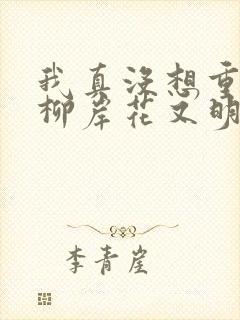 我真没想重
柳岸花又明
李青崖